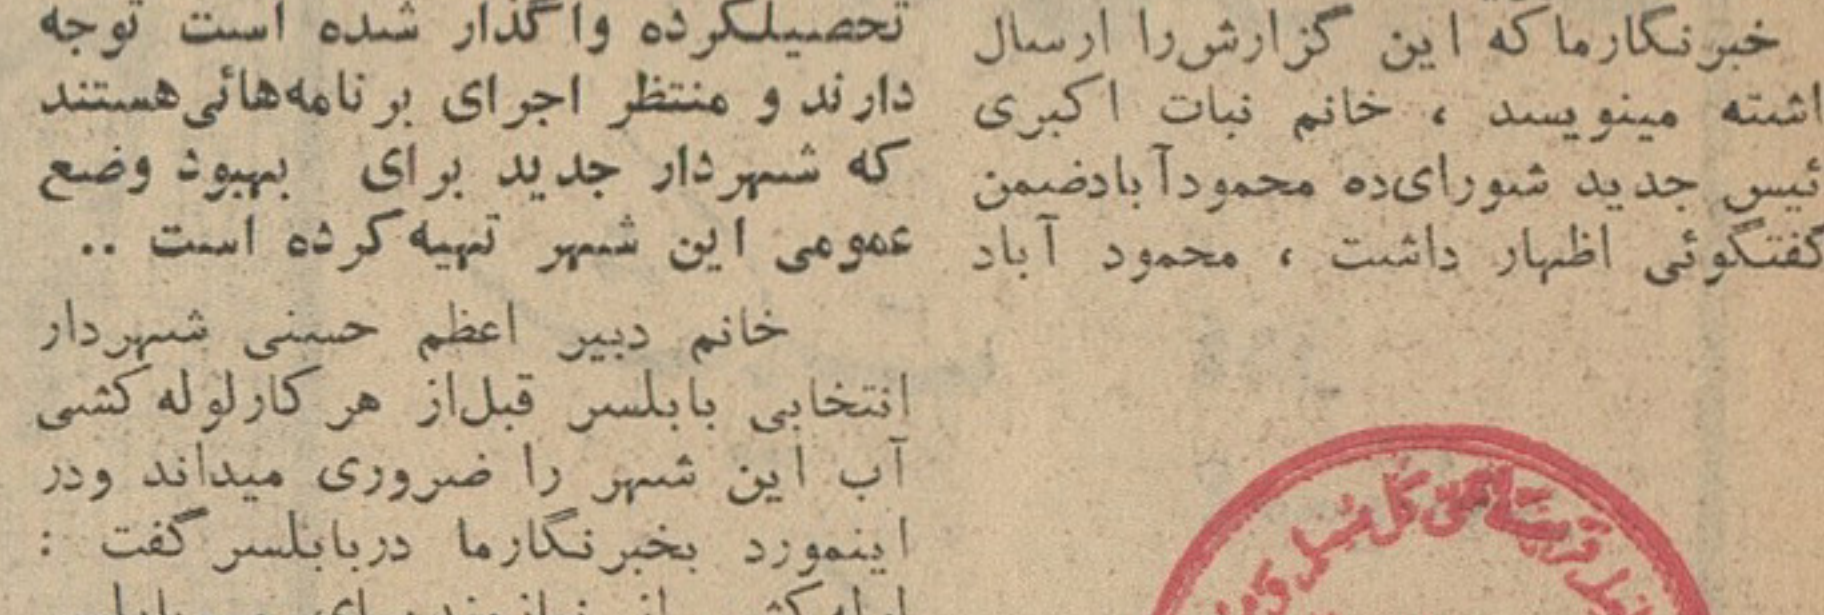 خبرنگارما که این گزارش را ارسال
اشته مینویسد ، خانم نبات اکبری
ئیس جدید شورای ده محمودآبادضمن
گفتگوئی اظهار داشت ، محمود آباد
تحصیلکرده واگذار شده است توجه
دارند و منتظر اجرای برنامه‌هائی هستند
که شهردار جدید برای بهبود وضع
عمومی این شهر تهیه کرده است ..
خانم دبیر اعظم حسنی شهردار
انتخابی بابلسر قبل‌از هر کارلوله کشی
آب این شهر را ضروری میداند ودر
اینمورد بخبرنگارما دربابلسر گفت :